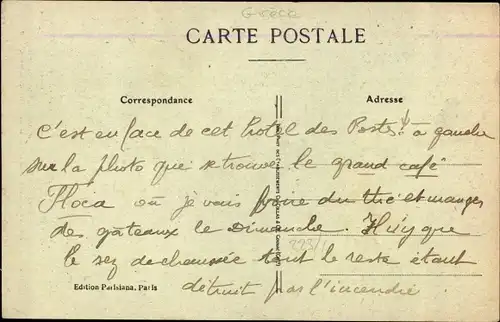 Grèce
CARTE POSTALE
Correspondance
Adresse
C'est en face de cet hotel des Postes! à gauche
sur la photo que se trouve le grand café
Floca où je vais boire du thé et manger
des gâteaux le Dimanche. Il n'y a que
le rez de chaussée tout le reste étant
détruit par l'incendie
Edition Parisiana, Paris